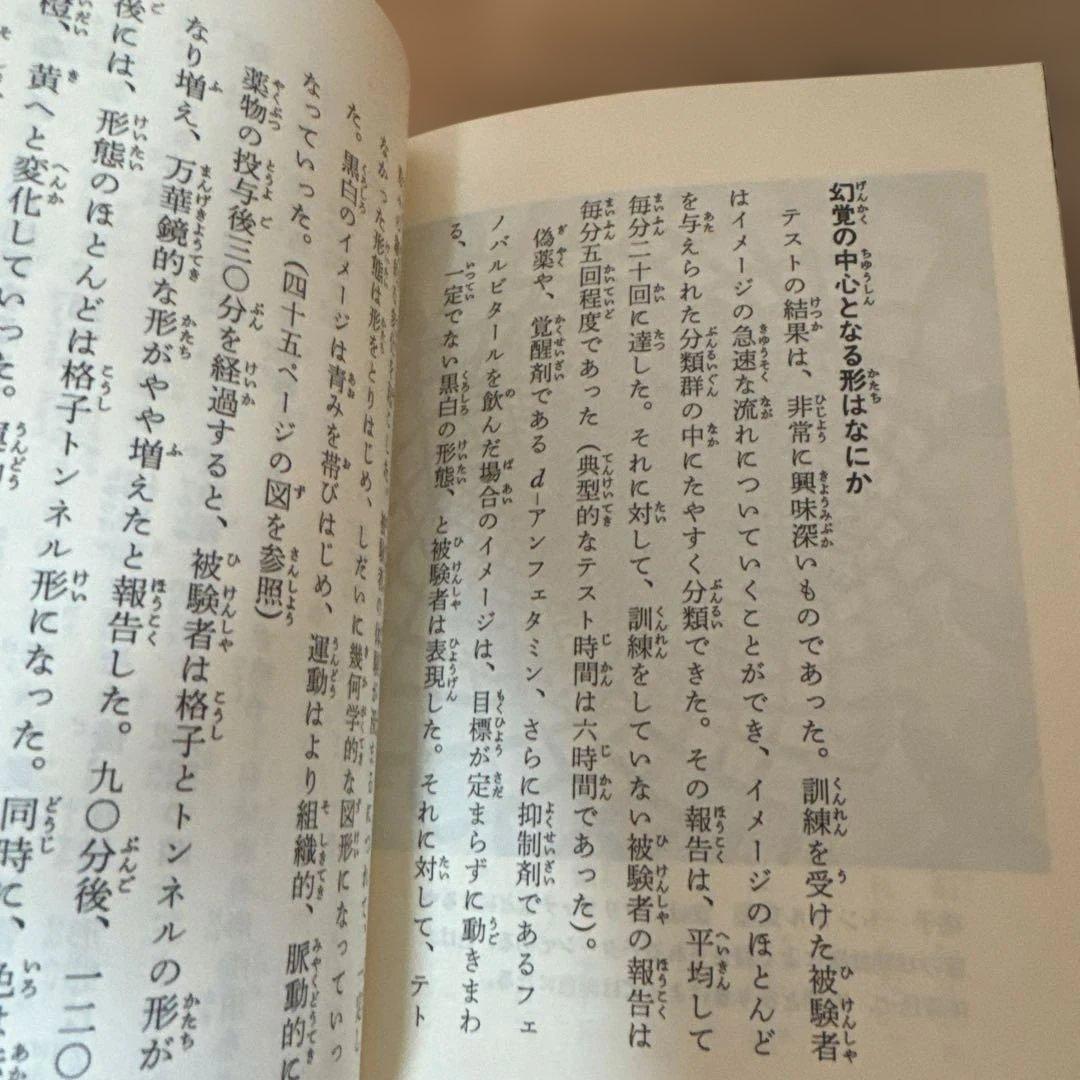 幻覚の中心となる形はなにか
テストの結果は、非常に興味深いものであった。訓練を受けた被験者
はイメージの急速な流れについていくことができ、イメージのほとんど
を与えられた分類群の中にたやすく分類できた。その報告は、平均して
毎分二十回に達した。それに対して、訓練をしていない被験者の報告は
毎分五回程度であった（典型的なテスト時間は六時間であった）。
偽薬や、覚醒剤であるd-アンフェタミン、さらに抑制剤であるフェ
ノバルビタールを飲んだ場合のイメージは、目標が定まらずに動きまわ
る、一定でない黒白の形態、と被験者は表現した。それに対して、テト
なかった形態は形をとりはじめ、しだいに幾何学的な図形になっていっ
た。黒白のイメージは青みを帯びはじめ、運動はより組織的、脈動的に
なっていった。（四十五ページの図を参照）
薬物の投与後三〇分を経過すると、被験者は格子とトンネルの形が
なり増え、万華鏡的な形がやや増えたと報告した。九〇分後、一二〇
後には、形態のほとんどは格子トンネル形になった。同時に、色は
橙、黄へと変化していった。